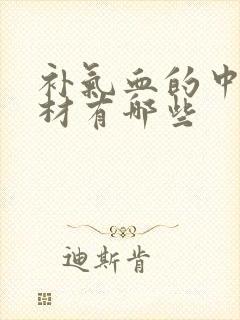 补氣血的中
材有哪些
迪斯肯